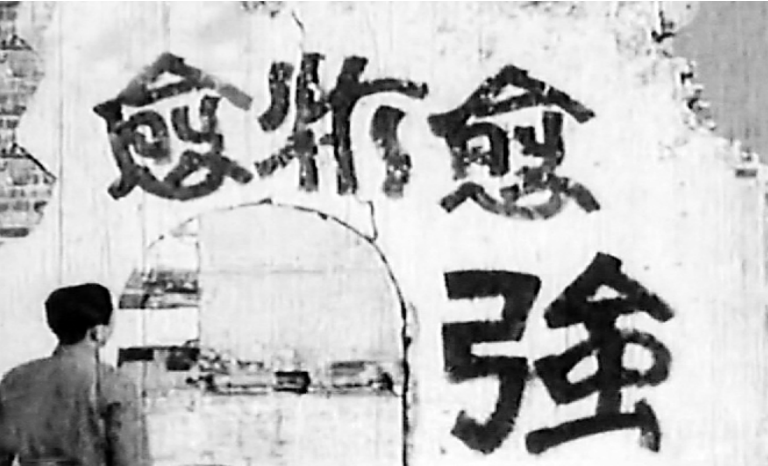 愈炸愈
強